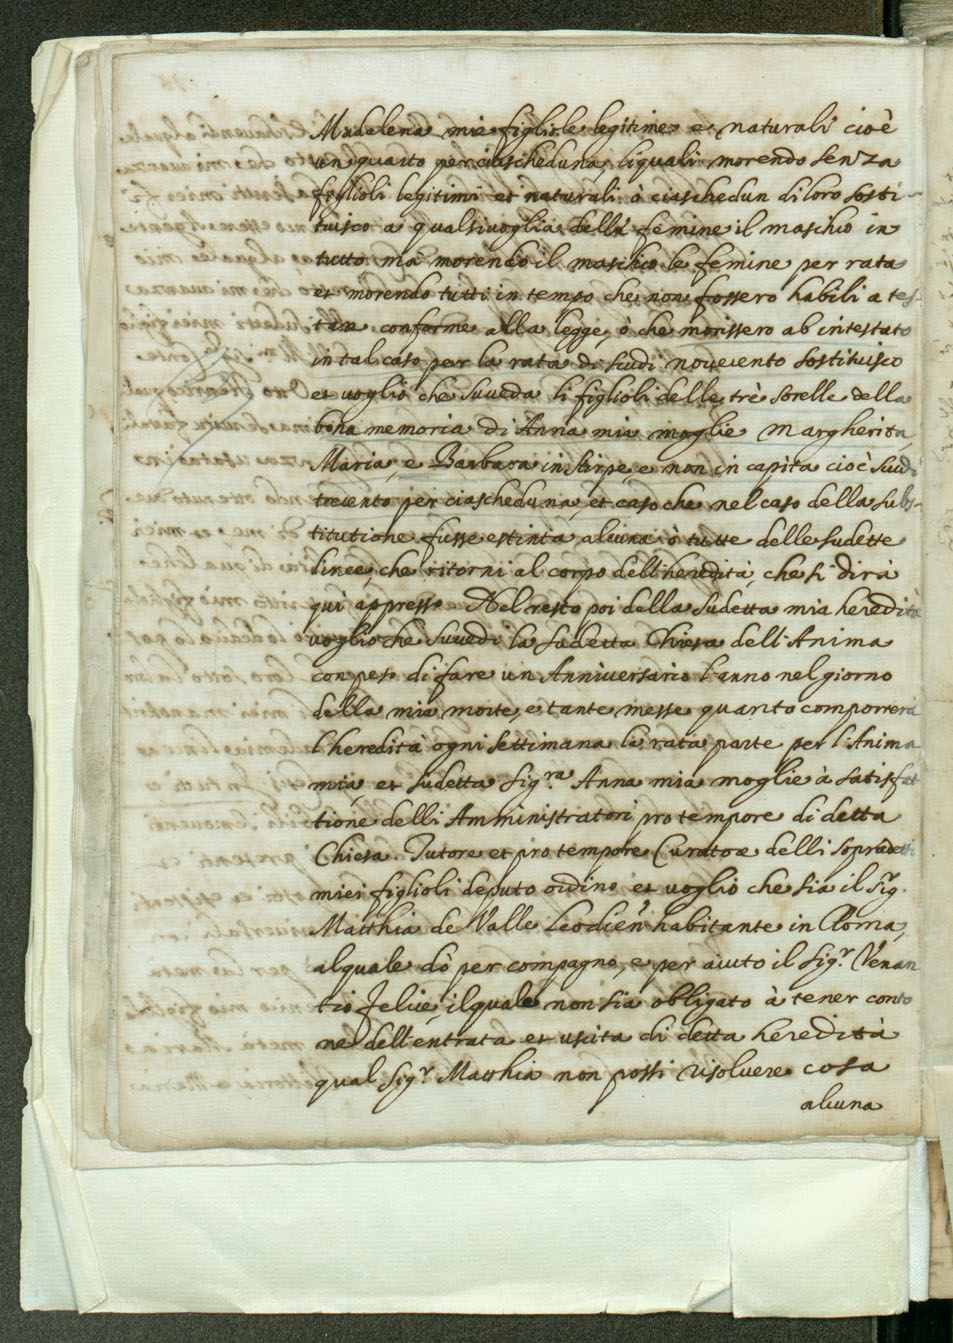 Madalena mie figliole legitime e naturali cioè
un quarto per ciascheduna, li quali morendo senza
figlioli legitimi et naturali à ciaschedun di loro sosti-
tuisco a qualsivoglia delle femine il maschio in
tutto. mà morendo il maschio le femine per rata
et morendo tutti in tempo che non fossero habili a tes-
tare conforme alla legge, ò che morissero ab intestato
in tal caso per la rata di scudi novecento sostituisco
et voglio che succeda li figlioli delle trè sorelle della
bona memoria di Anna mia moglie Margherita,
Maria, e Barbara in stirpe, e non in capita cioè scudi
trecento per ciascheduna, et caso che nel caso della subs-
titutione fusse estinta alcuna ò tutte delle sudette
linee, che ritorni al corpo dell'heredità, che si dirà
quì appresso. Nel resto poi della sudetta mia heredità
voglio che succedi la sudetta Chiesa dell'Anima
con peso di fare un Anniversario l'anno nel giorno
della mia morte, e tante messe quanto comporrerà
l'heredità ogni settimana la rata parte per l'Anima
mia, et sudetta Sig.ra Anna mia moglie à satisfat
tione delli Amministratori pro tempore di detta
Chiesa. Tutore et pro tempore Curatore delli sopradetti
miei figlioli deputo ordino et voglio che sia il Sig.r
Matthia de Valle Leodien' habitante in Roma,
al quale dò per compagno, e per aiuto il Sig.r Venan
tio felice, il quale non sia obligato à tener conto
ne dell'entrata et uscita di detta heredità
qual Sig.r Matthia non possi risolvere cosa
alcuna